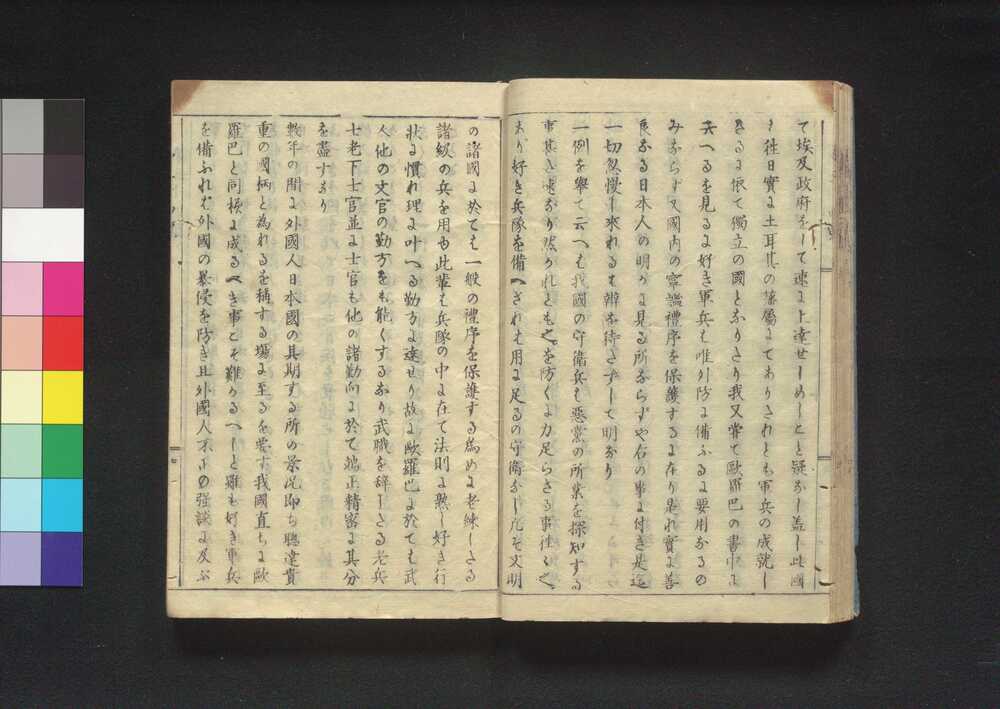 て埃及政府をして速に上達せしめしこと疑なし蓋し此國
も往日實に土耳其の藩屬にてありされとも軍兵の成就し
たるに依て獨立の國となりたり我又嘗て歐羅巴の書中に
云へるを見るに好き軍兵も唯外防に備ふるに要用なるの
みならす又國内の寧謐禮序を保護するに在り是れ實に善
良なる日本人の明かに見る所ならすや右の事に付き是迄
一切怱慢し来れるも辨を待たすして明なり
一例を舉て云へも我國の守衛兵も悪黨の所業を探知する
事甚た速なり然りれとも之を防くに力足らさる事往々之
あり好き兵隊を備へされも用に足るの守衛なし凡そ文明
の諸國に於ても一般の禮序を保護する為めに老練したる
諸級の兵を用ゆ此輩も兵隊の中に在て法則に熟し好き行
状に慣れ理に叶へる勤方に達せり故に歐羅巴に於ても武
人他の文官の勤方をも能くするなり武職を辞したる老兵
士老下士官並に士官も他の諸勤向に於て端正精密に其分
を盡すなり
数年の間に外國人日本國の其期する所の景况即ち聰達貴
重の國柄と為れるを稱する場に至るを要す我國直ちに歐
羅巴と同様に成るべき事こそ難かるへしと雖も好き軍兵
を備ふれも外國の暴侵を防き且外國人不正の強談に及ふ